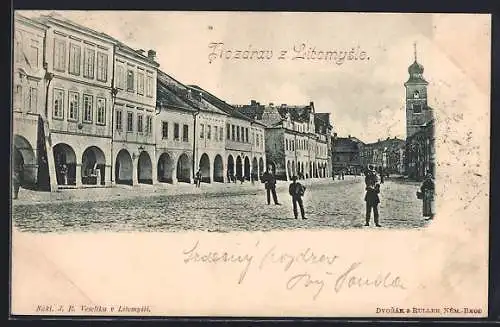 Pozdrav z Litomyšle.
Srdečný pozdrav
Nakl. J. R. Veselíka v Litomyšli.
Dvořák & Ruller, Něm.-Brod